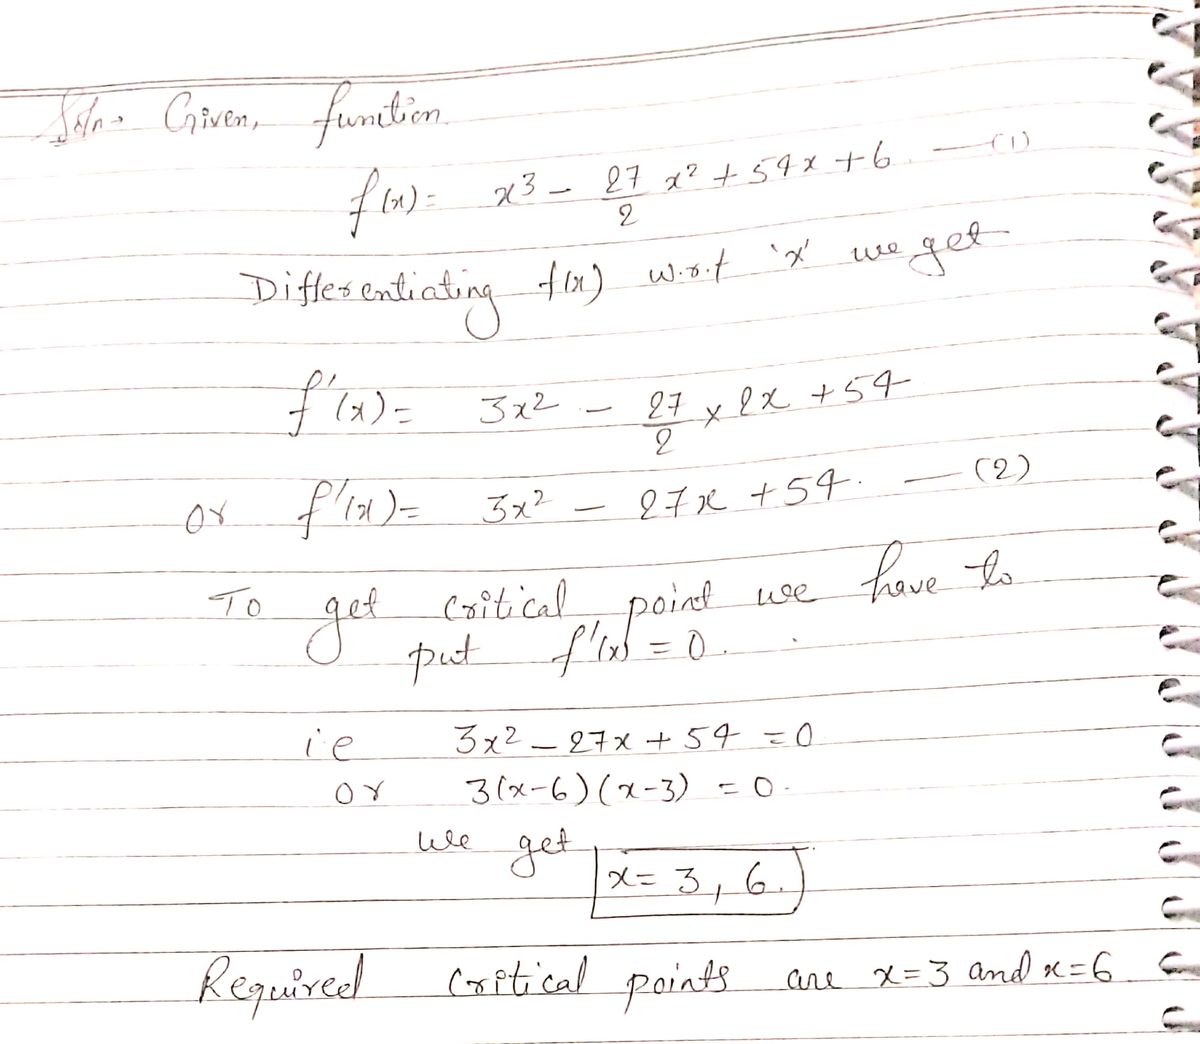 Soln. Given, function.
f(x) = x3 - 27/2 x2 + 54x + 6. — (1)
Differentiating f(x) w.r.t 'x' we get
f'(x) = 3x2 - 27/2 × 2x + 54
or f'(x) = 3x2 - 27x + 54. — (2)
To get critical point we have to
put f'(x) = 0.
i.e 3x2 - 27x + 54 = 0
or 3(x-6)(x-3) = 0.
we get
x = 3, 6.
Required critical points are x=3 and x=6